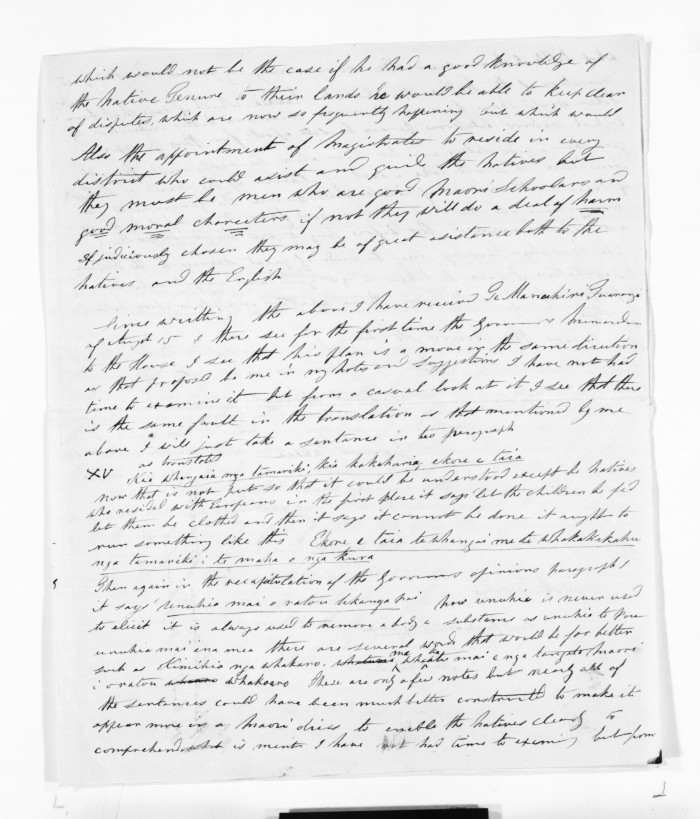 which would not be the case if he had a good knowledge of
the Native Tenure to their lands he would be able to keep clear
of disputes, which are now so frequently happening but which would
Also the appointment of Magistrates to reside in every
district who could asist and guide the Natives but
they must be men who are good Maori Schoolars and
good moral charecters if not they will do a deal of harm
If judiciously chosen they may be of great asistance both to the
natives, and the English
Since writting the above I have received Te Manuhiri Tuarangi
of Augt 15 & there see for the first time the Governors
to the House I see that his plan is a move in the same direction
as that proposed be me in my notes and suggestions I have not had
time to examine it but from a casual look at it I see that there
is the same fault in the translation as that mentioned by me
above I will just take a sentence in paragraph
XV as translated
Kia whangaia nga tamariki, kia kakahuria ekore e taea
now that is not put so that it could be understood except be natives
who resided with Europeans in the first place it says let the children be fed
let them be clothed and then it says it cannot be done it aught to
run something like this Ekore e taea te whangai me te whakakakahu
nga tamariki i te maha o nga
Then again in the recapitulation of the Governors opinions paragraph
it says unuhia mai o ratou tikanga now unuhia is never used
to elicit it is always used to remove a body or substance as unuhia te
unuhia mai ena mea there are several words that would be far better
such as Kimihia nga whakaro, mai e nga tangata Maori
i o ratou whakaaro There are only a few notes but nearly all of
the sentences could have been much better to make it
appear more in a Maori dress to enable the natives clearly to
comprehend what is ment I have not had time to examin, but from